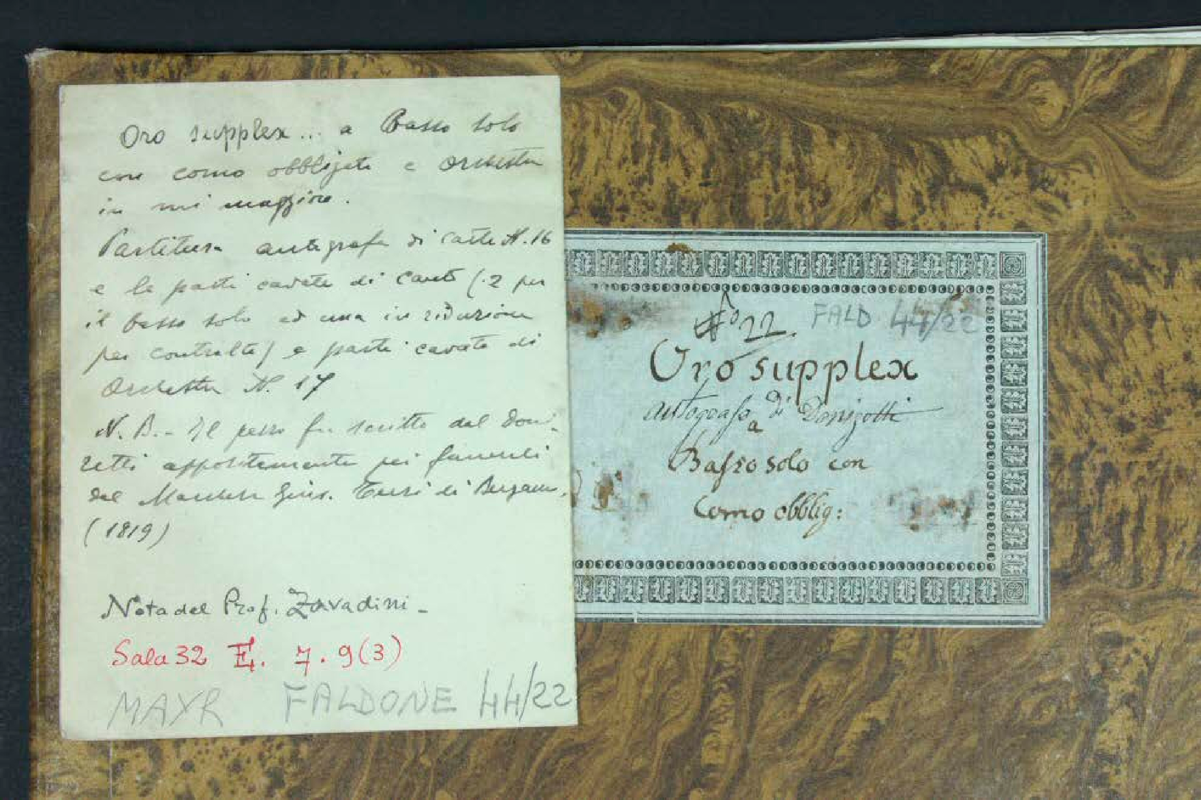 Oro supplex... a Basso solo
con corno obbligato e Orchestra
in mi maggiore.
Partitura autografa di carte N. 16
e le parti cavate di canto (.2 per
il basso solo ed una in riduzione
per contralto) e parti cavate di
Orchestra N. 17
N. B. - Il pezzo fu scritto dal Doni-
zetti appositamente pei funerali
del Marchese Terzi di Bergamo.
(1819)
Nota del Prof. Zavadini -
Sala 32 E. 7. 9(3)
MAYR FALDONE 44/22
No 22. FALD 44/22
Oro supplex
autografa di Donizotti
a
Basso solo con
Corno obblig: